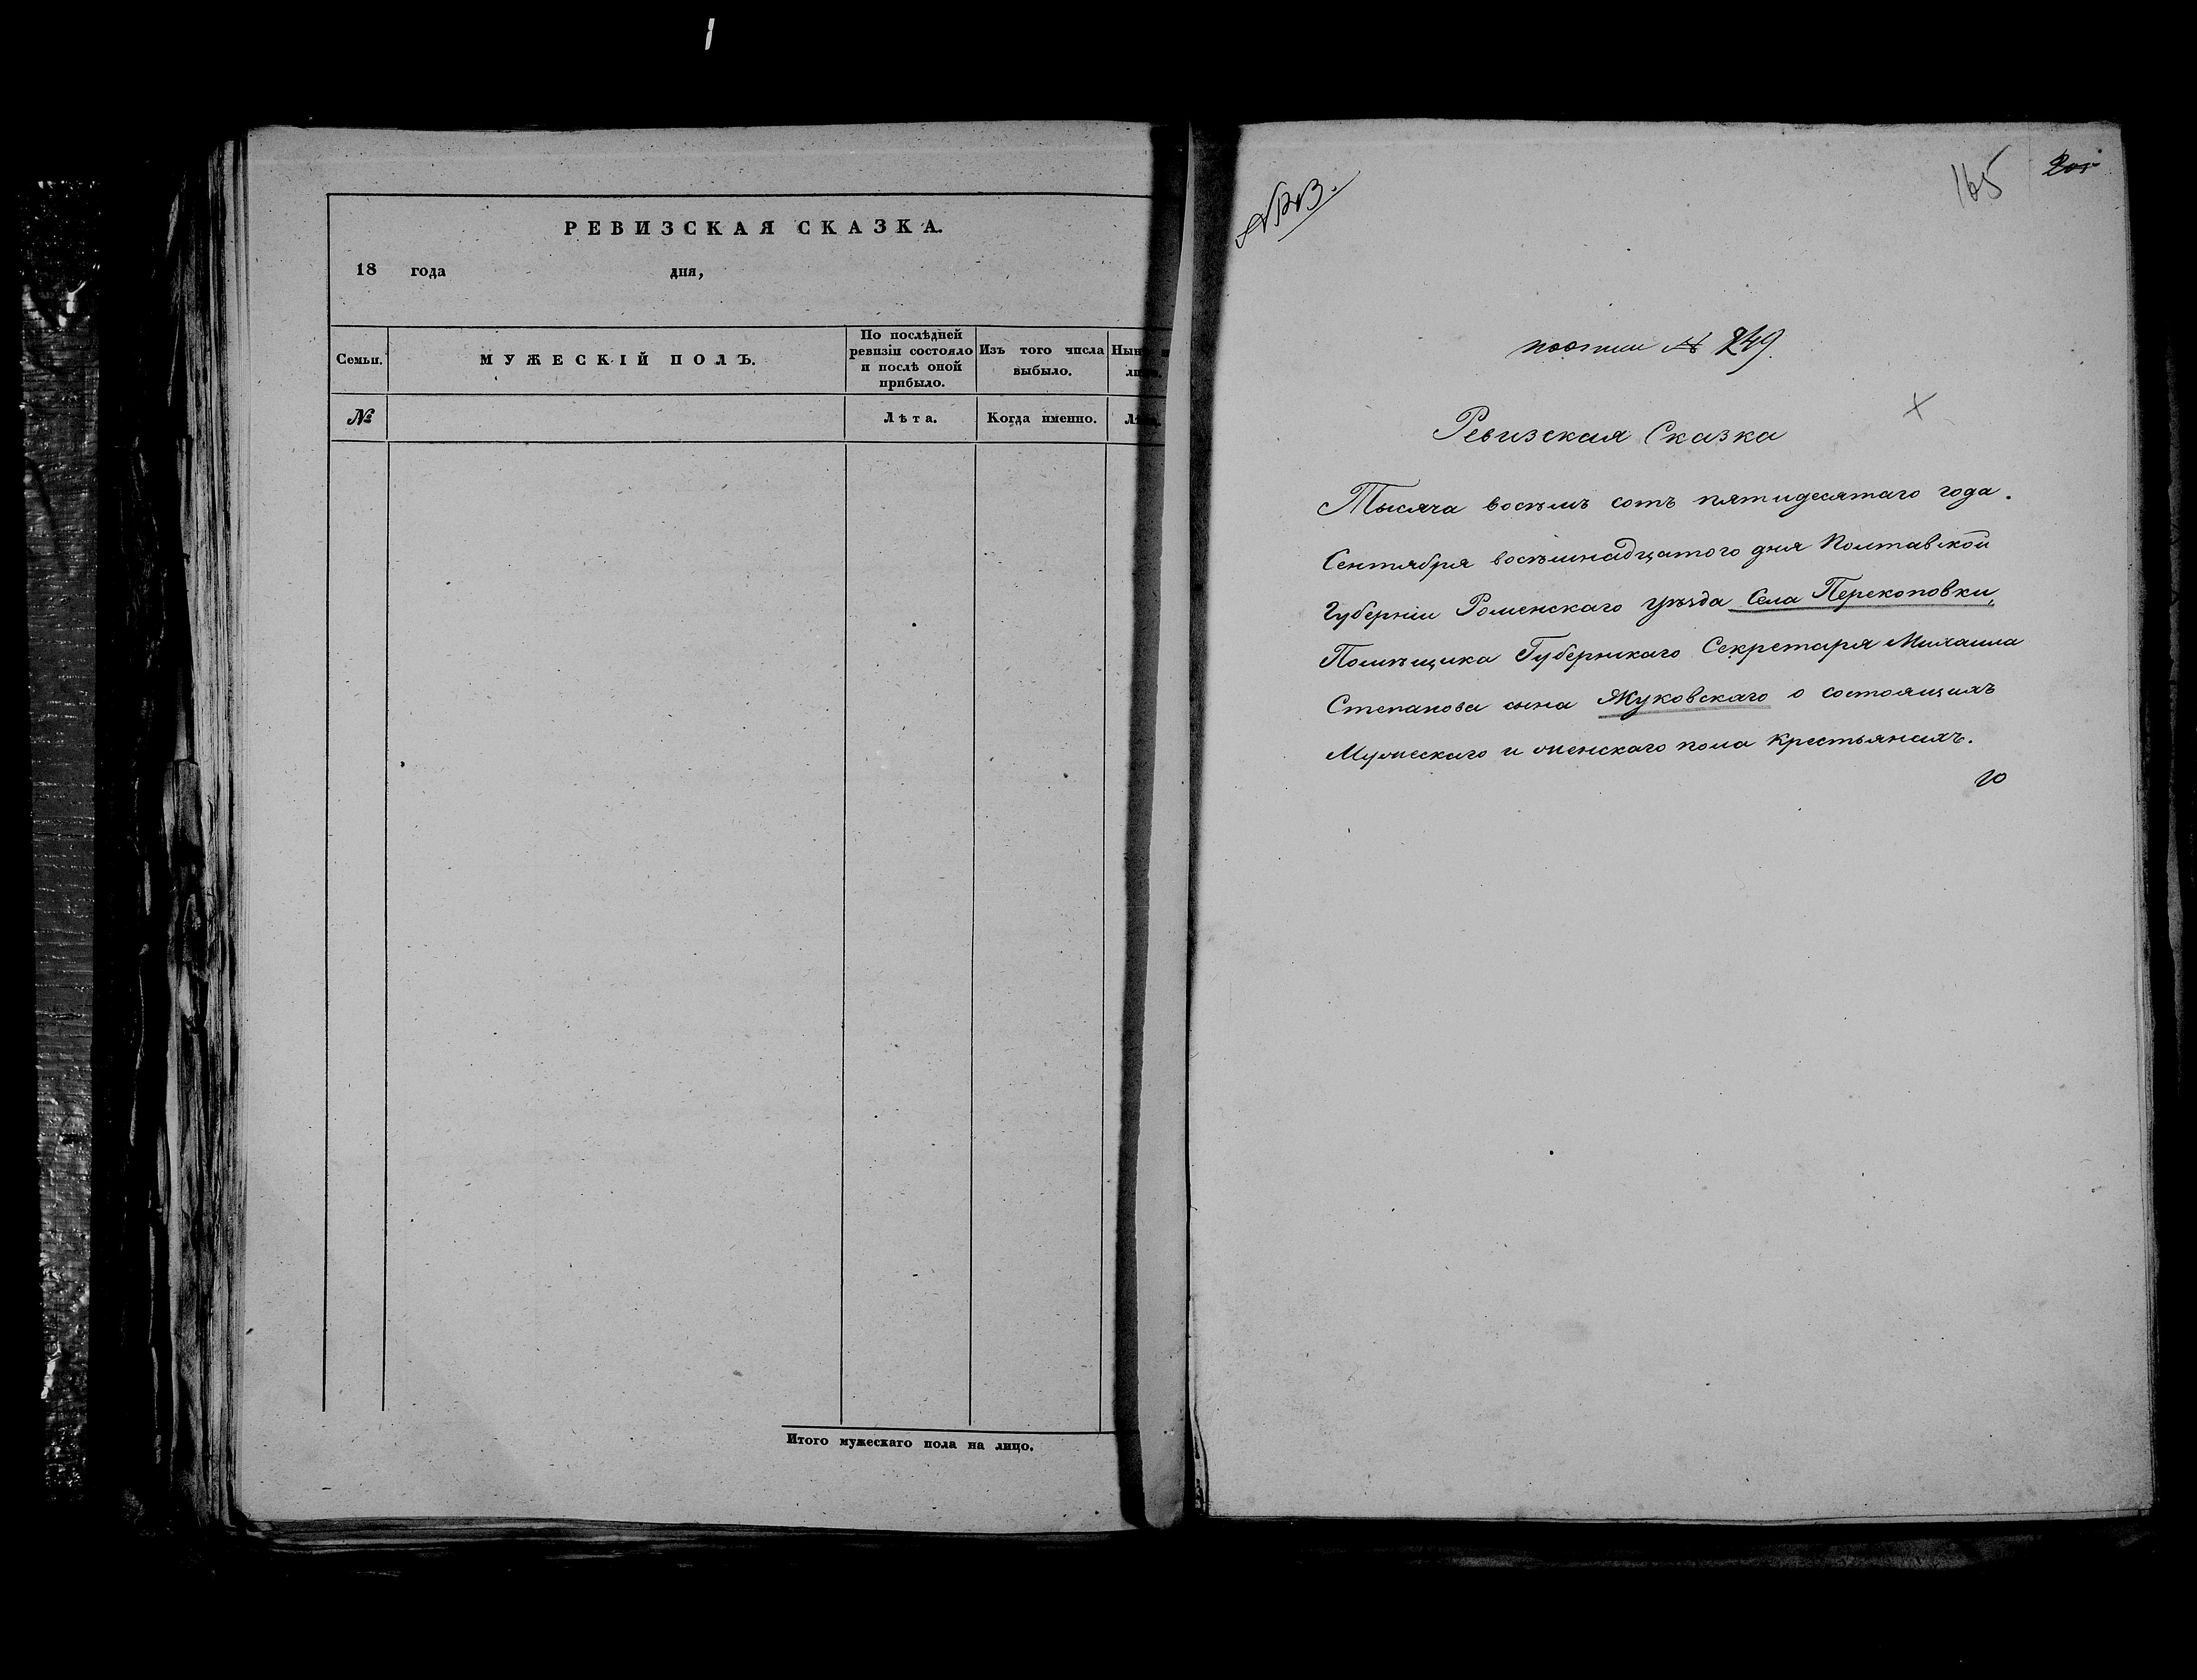 РЕВИЗСКАЯ СКАЗКА.
18 года дня,
Семьи. МУЖЕСКІЙ ПОЛЪ. По послѣдней ревизіи состояло и послѣ оной прибыло. Изъ того числа выбыло.
№ Лѣта. Когда именно.
Итого мужескаго пола на лицо.
165
№ 249.
Ревизская Сказка
Тысяча восѣмь сотъ пятидесятаго года.
Сентября восѣмнадцатого дня Полтавской
Губерніи Роменскаго уѣзда Села Перекоповки,
Помѣщика Губернскаго Секретаря Михаила
Степанова сына Жуковскаго о состоящихъ
Мужескаго и женскаго пола крестьянахъ.